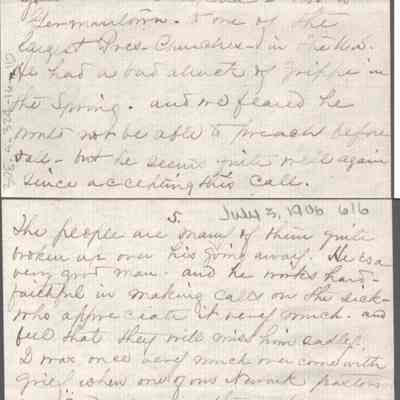 Germantown. & one of the
largest Pres- Churches- in the U.S.
He had a bad attack of Grippe in
the Spring. and we feared he
would not be able to preach before
but he seems quite well again
since accepting this call.
5.
July 3, 1906 6/6
The people are many of them quite
broken up over his going away. He is a
very good man- and he works hard-
faithful in making calls on the sick-
who appreciate it very much. and
feel that they will miss him sadly.
I was once very much overcome with
grief when one of our Newark pastors